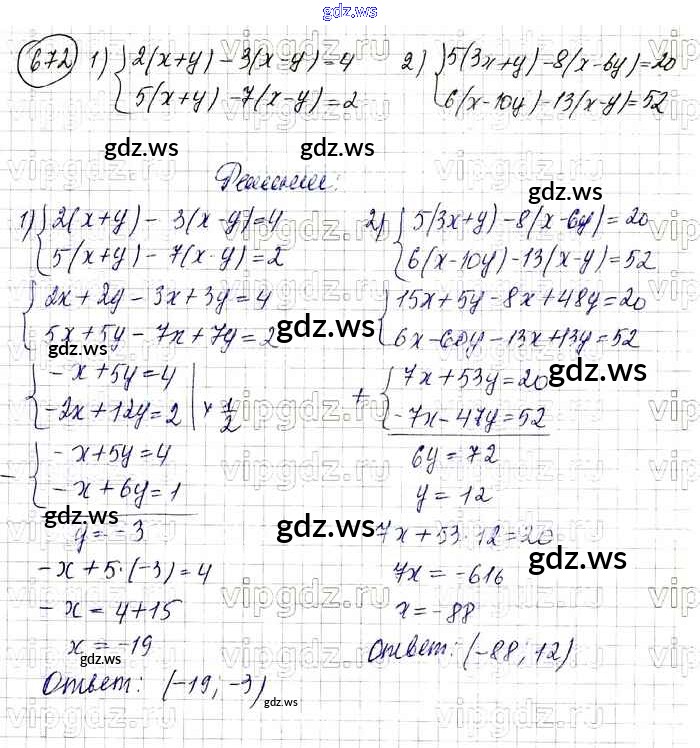 gdz.ws
672 1) { 2(x+y) - 3(x-y) = 4
5(x+y) - 7(x-y) = 2
2) { 5(3x+y) - 8(x-6y) = 20
6(x-10y) - 13(x-y) = 52
gdz.ws gdz.ws
Решение:
gdz.ws
1) { 2(x+y) - 3(x-y) = 4
5(x+y) - 7(x-y) = 2
{ 2x+2y - 3x+3y = 4
5x+5y - 7x+7y = 2
gdz.ws
{ -x+5y = 4
-2x+12y = 2 | × 1/2
- { -x+5y = 4
-x+6y = 1
gdz.ws
y = -3
-x+5·(-3) = 4
-x = 4+15
x = -19
gdz.ws
Ответ: (-19; -3)
gdz.ws
2) { 5(3x+y) - 8(x-6y) = 20
6(x-10y) - 13(x-y) = 52
{ 15x+5y - 8x+48y = 20
6x-60y - 13x+13y = 52
gdz.ws gdz.ws
+ { 7x+53y = 20
-7x-47y = 52
6y = 72
y = 12
gdz.ws
7x+53·12 = 20
gdz.ws
7x = -616
x = -88
Ответ: (-88; 12)
vipgdz.ru